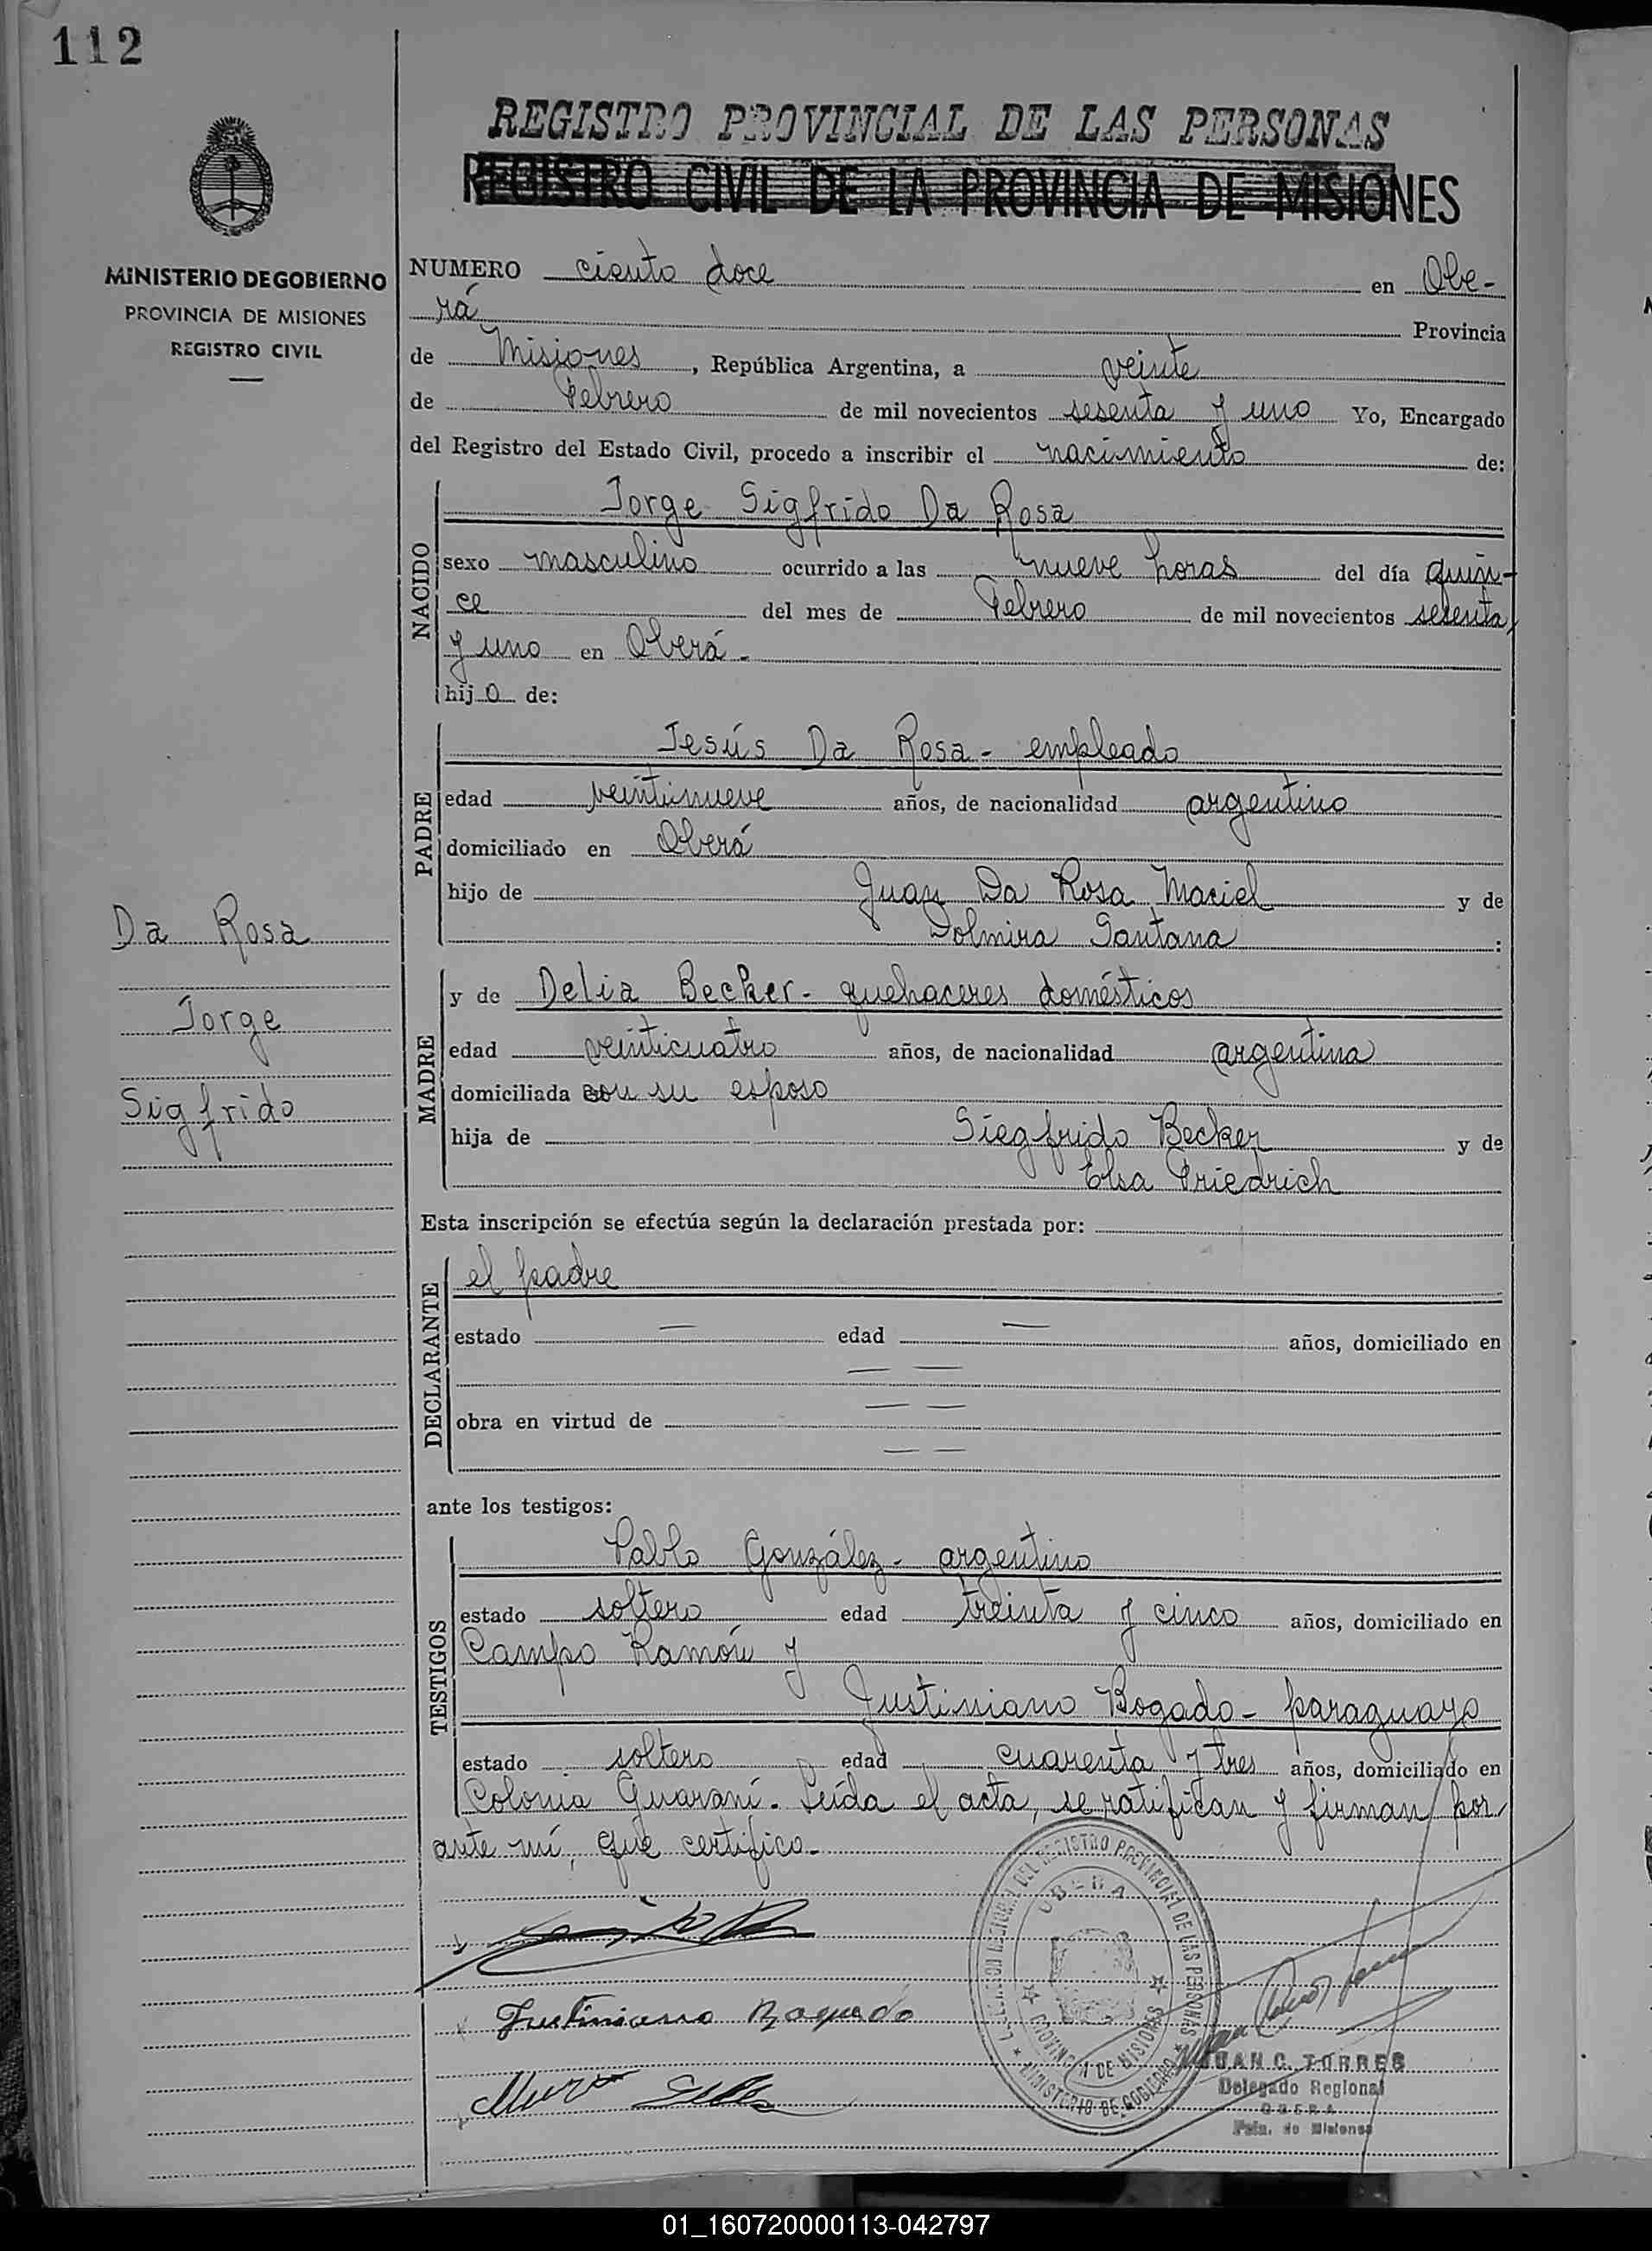 112
REGISTRO PROVINCIAL DE LAS PERSONAS
REGISTRO CIVIL DE LA PROVINCIA DE MISIONES
MINISTERIO DE GOBIERNO
PROVINCIA DE MISIONES
REGISTRO CIVIL
NUMERO ciento doce en Obe-
rá Provincia
de Misiones, República Argentina, a veinte
de Febrero de mil novecientos sesenta y uno Yo, Encargado
del Registro del Estado Civil, procedo a inscribir el nacimiento de:
NACIDO
Jorge Sigfrido Da Rosa
sexo masculino ocurrido a las nueve horas del día quin-
ce del mes de Febrero de mil novecientos sesenta
y uno en Oberá.-
hijo de:
PADRE
Jesús Da Rosa - empleado
edad veintinueve años, de nacionalidad argentino
domiciliado en Oberá
hijo de Juan Da Rosa Maciel y de
Dolmira Santana:
MADRE
y de Delia Becker - quehaceres domésticos
edad veinticuatro años, de nacionalidad argentina
domiciliada con su esposo
hija de Siegfrido Becker y de
Elsa Friedrich
Da Rosa
Jorge
Sigfrido
Esta inscripción se efectúa según la declaración prestada por:
DECLARANTE
el padre
estado — edad — años, domiciliado en
— —
obra en virtud de — —
— —
ante los testigos:
TESTIGOS
Pablo González - argentino
estado soltero edad treinta y cinco años, domiciliado en
Campo Ramón y
Justiniano Bogado - paraguayo
estado soltero edad cuarenta y tres años, domiciliado en
Colonia Guaraní. Leída el acta, se ratifican y firman por
ante mí, que certifico.-
Justiniano Bogado
REGISTRO PROVINCIAL DE LAS PERSONAS
OBERA
PROVINCIA DE MISIONES
MINISTERIO DE GOBIERNO
JUAN C. TORRES
Delegado Regional
OBERA
Pcia. de Misiones
01_160720000113-042797